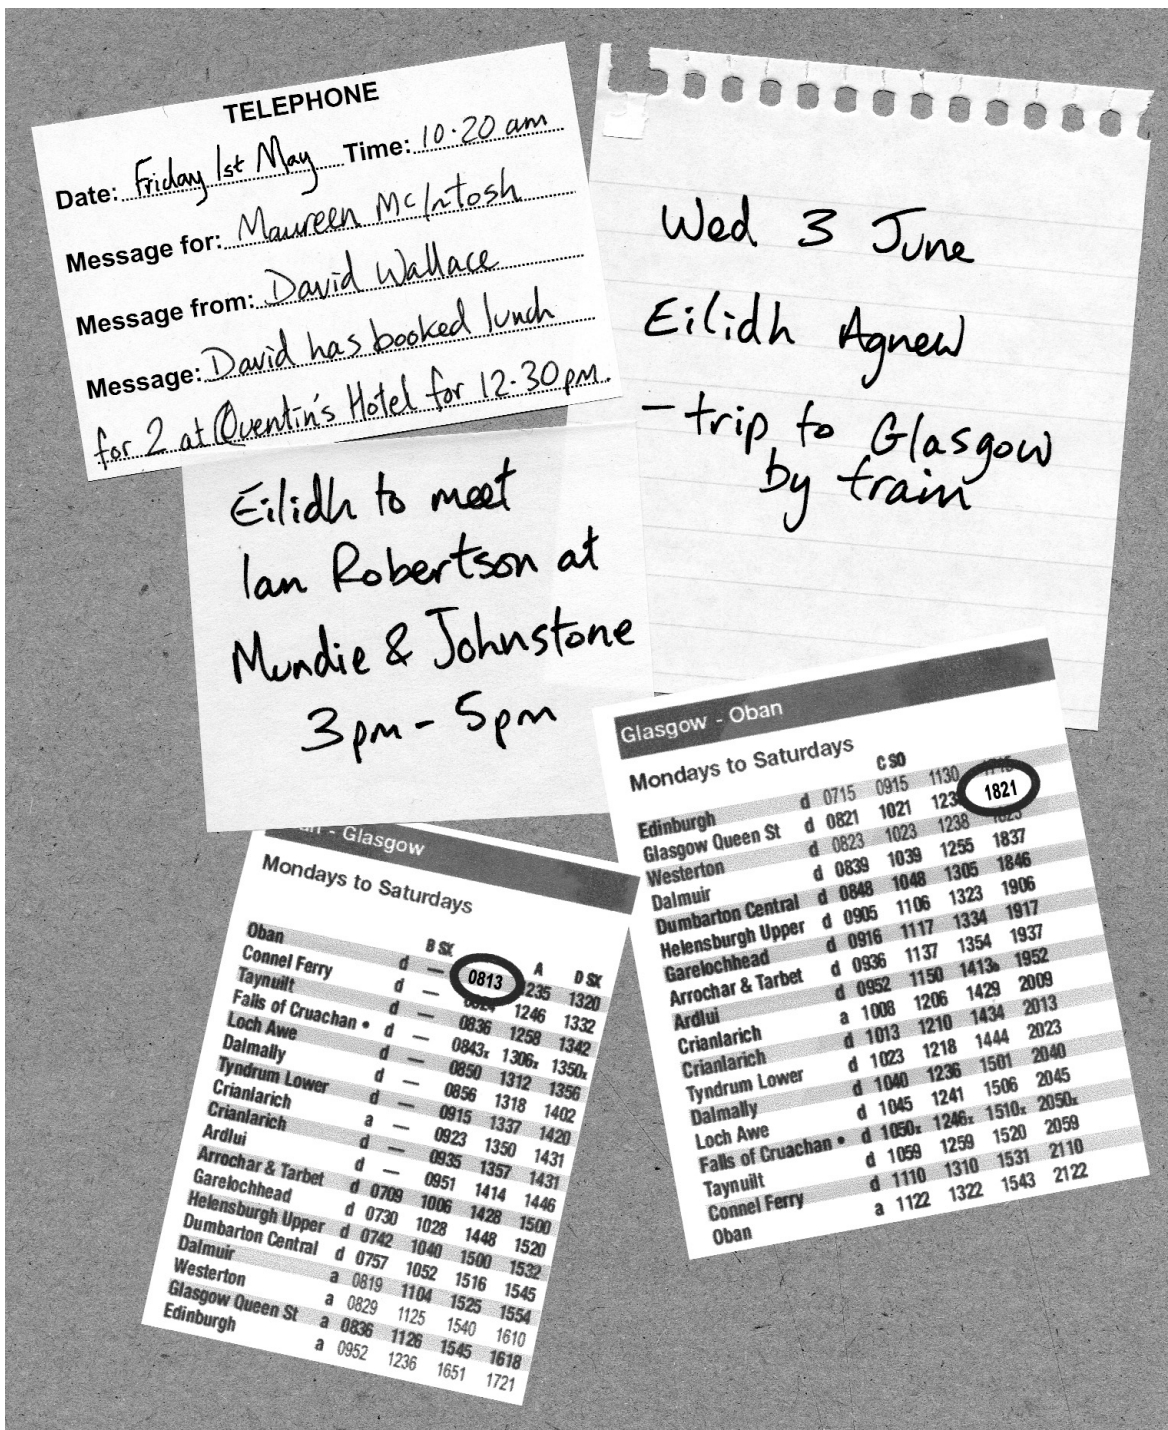 TELEPHONE
Date: Friday 1st May Time: 10.20 am
Message for: Maureen McIntosh
Message from: David Wallace
Message: David has booked lunch
for 2 at Quentin's Hotel for 12.30pm.
Wed 3 June
Eilidh Agnew
- trip to Glasgow
by train
Eilidh to meet
Ian Robertson at
Mundie & Johnstone
3pm - 5pm
- Glasgow
Mondays to Saturdays
B SX A D SX
Oban d — 0813 1235 1320
Connel Ferry d — 0824 1246 1332
Taynuilt d — 0836 1258 1342
Falls of Cruachan • d — 0843x 1306x 1350x
Loch Awe d — 0850 1312 1356
Dalmally d — 0856 1318 1402
Tyndrum Lower d — 0915 1337 1420
Crianlarich a — 0923 1350 1431
Crianlarich d — 0935 1357 1431
Ardlui d — 0951 1414 1446
Arrochar & Tarbet d 0709 1006 1428 1500
Garelochhead d 0730 1028 1448 1520
Helensburgh Upper d 0742 1040 1500 1532
Dumbarton Central d 0757 1052 1516 1545
Dalmuir a 0819 1104 1525 1554
Westerton a 0829 1125 1540 1610
Glasgow Queen St a 0836 1126 1545 1618
Edinburgh a 0952 1236 1651 1721
Glasgow - Oban
Mondays to Saturdays
C SO
Edinburgh d 0715 0915 1130
Glasgow Queen St d 0821 1021 1821
Westerton d 0823 1023 1238
Dalmuir d 0839 1039 1255 1837
Dumbarton Central d 0848 1048 1305 1846
Helensburgh Upper d 0905 1106 1323 1906
Garelochhead d 0916 1117 1334 1917
Arrochar & Tarbet d 0936 1137 1354 1937
Ardlui d 0952 1150 1413b 1952
Crianlarich a 1008 1206 1429 2009
Crianlarich d 1013 1210 1434 2013
Tyndrum Lower d 1023 1218 1444 2023
Dalmally d 1040 1236 1501 2040
Loch Awe d 1045 1241 1506 2045
Falls of Cruachan • d 1050x 1246x 1510x 2050x
Taynuilt d 1059 1259 1520 2059
Connel Ferry d 1110 1310 1531 2110
Oban a 1122 1322 1543 2122